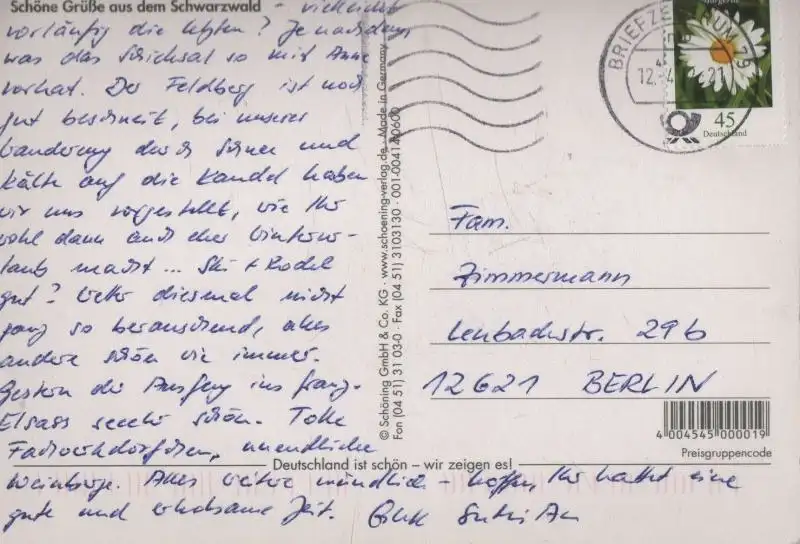 Schöne Grüße aus dem Schwarzwald – vielleicht
vorläufig die letzten? Je nachdem,
was das Schicksal so mit Anne
vorhat. Der Feldberg ist noch
gut beschneit, bei unserer
Wanderung durch Schnee und
Kälte auf die Kandel haben
wir uns vorgestellt, wie Ihr
wohl dann auch eher Winterur-
laub macht... Ski + Rodel
gut? Wetter diesmal nicht
ganz so berauschend, alles
andere schön wie immer.
Gestern der Ausflug ins franz.
Elsass sehr schön. Tolle
Fachwerkdörfchen, unendliche
Weinberge. Alles weitere mündlich – hoffen, Ihr hattet eine
gute und erholsame Zeit.
Deutschland ist schön – wir zeigen es!
© Schöning GmbH & Co. KG · www.schoening-verlag.de · Made in Germany
Fon (04 51) 31 03-0 · Fax (04 51) 3103130 · 001-0041-40600
BRIEFZENTRUM 79
12. 4. 21
45
Deutschland
Fam.
Zimmermann
Lenbachstr. 29b
12621 BERLIN
4 004545 000019
Preisgruppencode